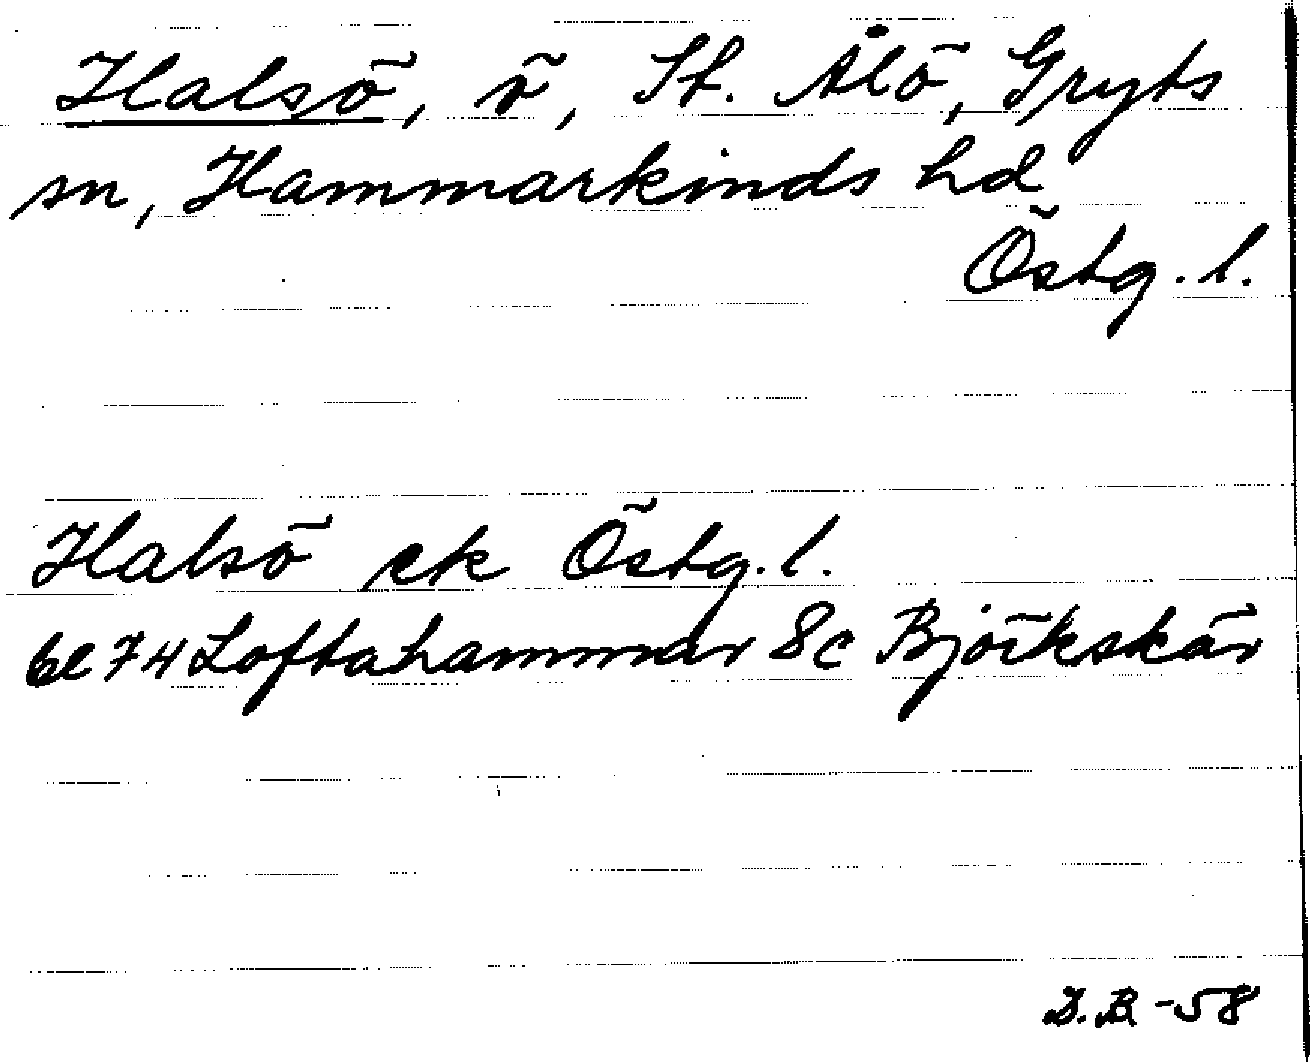 Halsö, ö, St. Ålö, Gryts
sn, Hammarkinds hd
Östg. l.
Halsö ek Östg. l.
bl 74 Loftahammar 8c Björkskär
D.B. -58